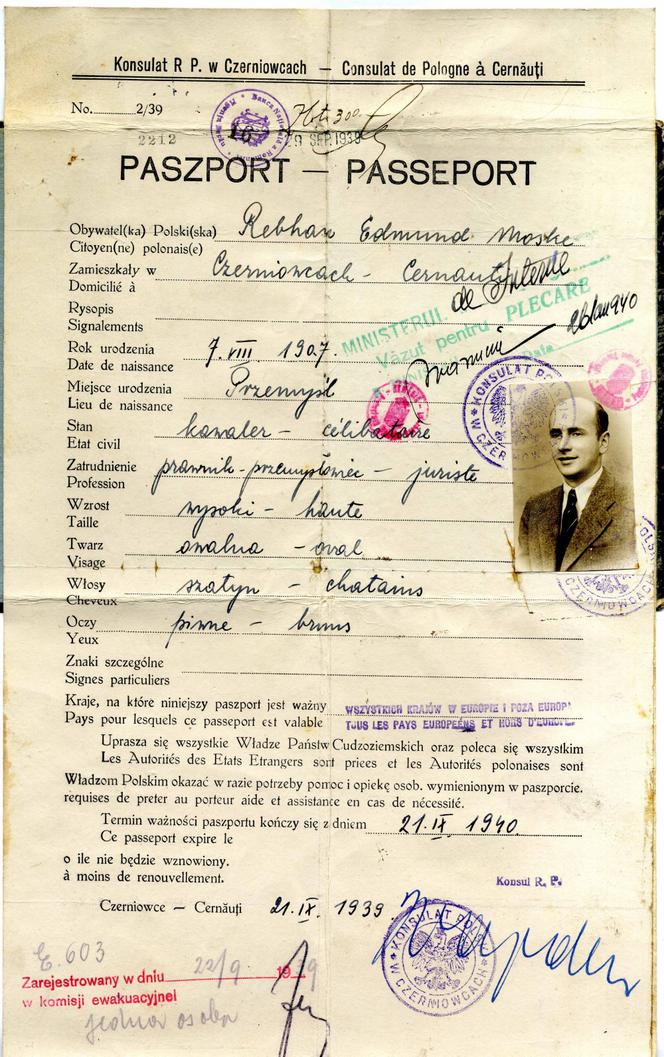 Konsulat R P. w Czerniowcach — Consulat de Pologne à Cernăuți
No. 2/39
2212
29 SEP. 1939
PASZPORT — PASSEPORT
Obywatel(ka) Polski(ska) Rebhan Edmund
Citoyen(ne) polonais(e)
Zamieszkały w Czerniowcach - Cernauti
Domicilié à
de Interne
Rysopis
Signalements
MINISTERUL
Văzut pentru PLECARE
Rok urodzenia 7. VIII. 1907.
Date de naissance
Miejsce urodzenia Przemyśl
Lieu de naissance
Stan kawaler - célibataire
Etat civil
KONSULAT POLSKI
W CZERNIOWCACH
Zatrudnienie prawnik - przemysłowiec - juriste
Profession
Wzrost wysoki - haute
Taille
Twarz owalna - oval
Visage
Włosy szatyn - chatains
Cheveux
Oczy piwne - bruns
Yeux
Znaki szczególne
Signes particuliers
Kraje, na które niniejszy paszport jest ważny WSZYSTKICH KRAJÓW W EUROPIE I POZA EUROPĄ
Pays pour lesquels ce passeport est valable TOUS LES PAYS EUROPEÉNS ET HORS D'EUROPE
Uprasza się wszystkie Władze Państw Cudzoziemskich oraz poleca się wszystkim
Les Autorités des Etats Etrangers sont prices et les Autorités polonaises sont
Władzom Polskim okazać w razie potrzeby pomoc i opiekę osob. wymienionym w paszporcie.
requises de preter au porteur aide et assistance en cas de nécessité.
Termin ważności paszportu kończy się z dniem 21. IX 1940.
Ce passeport expire le
o ile nie będzie wznowiony.
à moins de renouvellement.
Konsul R. P.
Czerniowce — Cernăuți 21. IX. 1939.
KONSULAT POLSKI
W CZERNIOWCACH
E. 603
Zarejestrowany w dniu 22/9 1939
w komisji ewakuacyjnej
jedna osoba